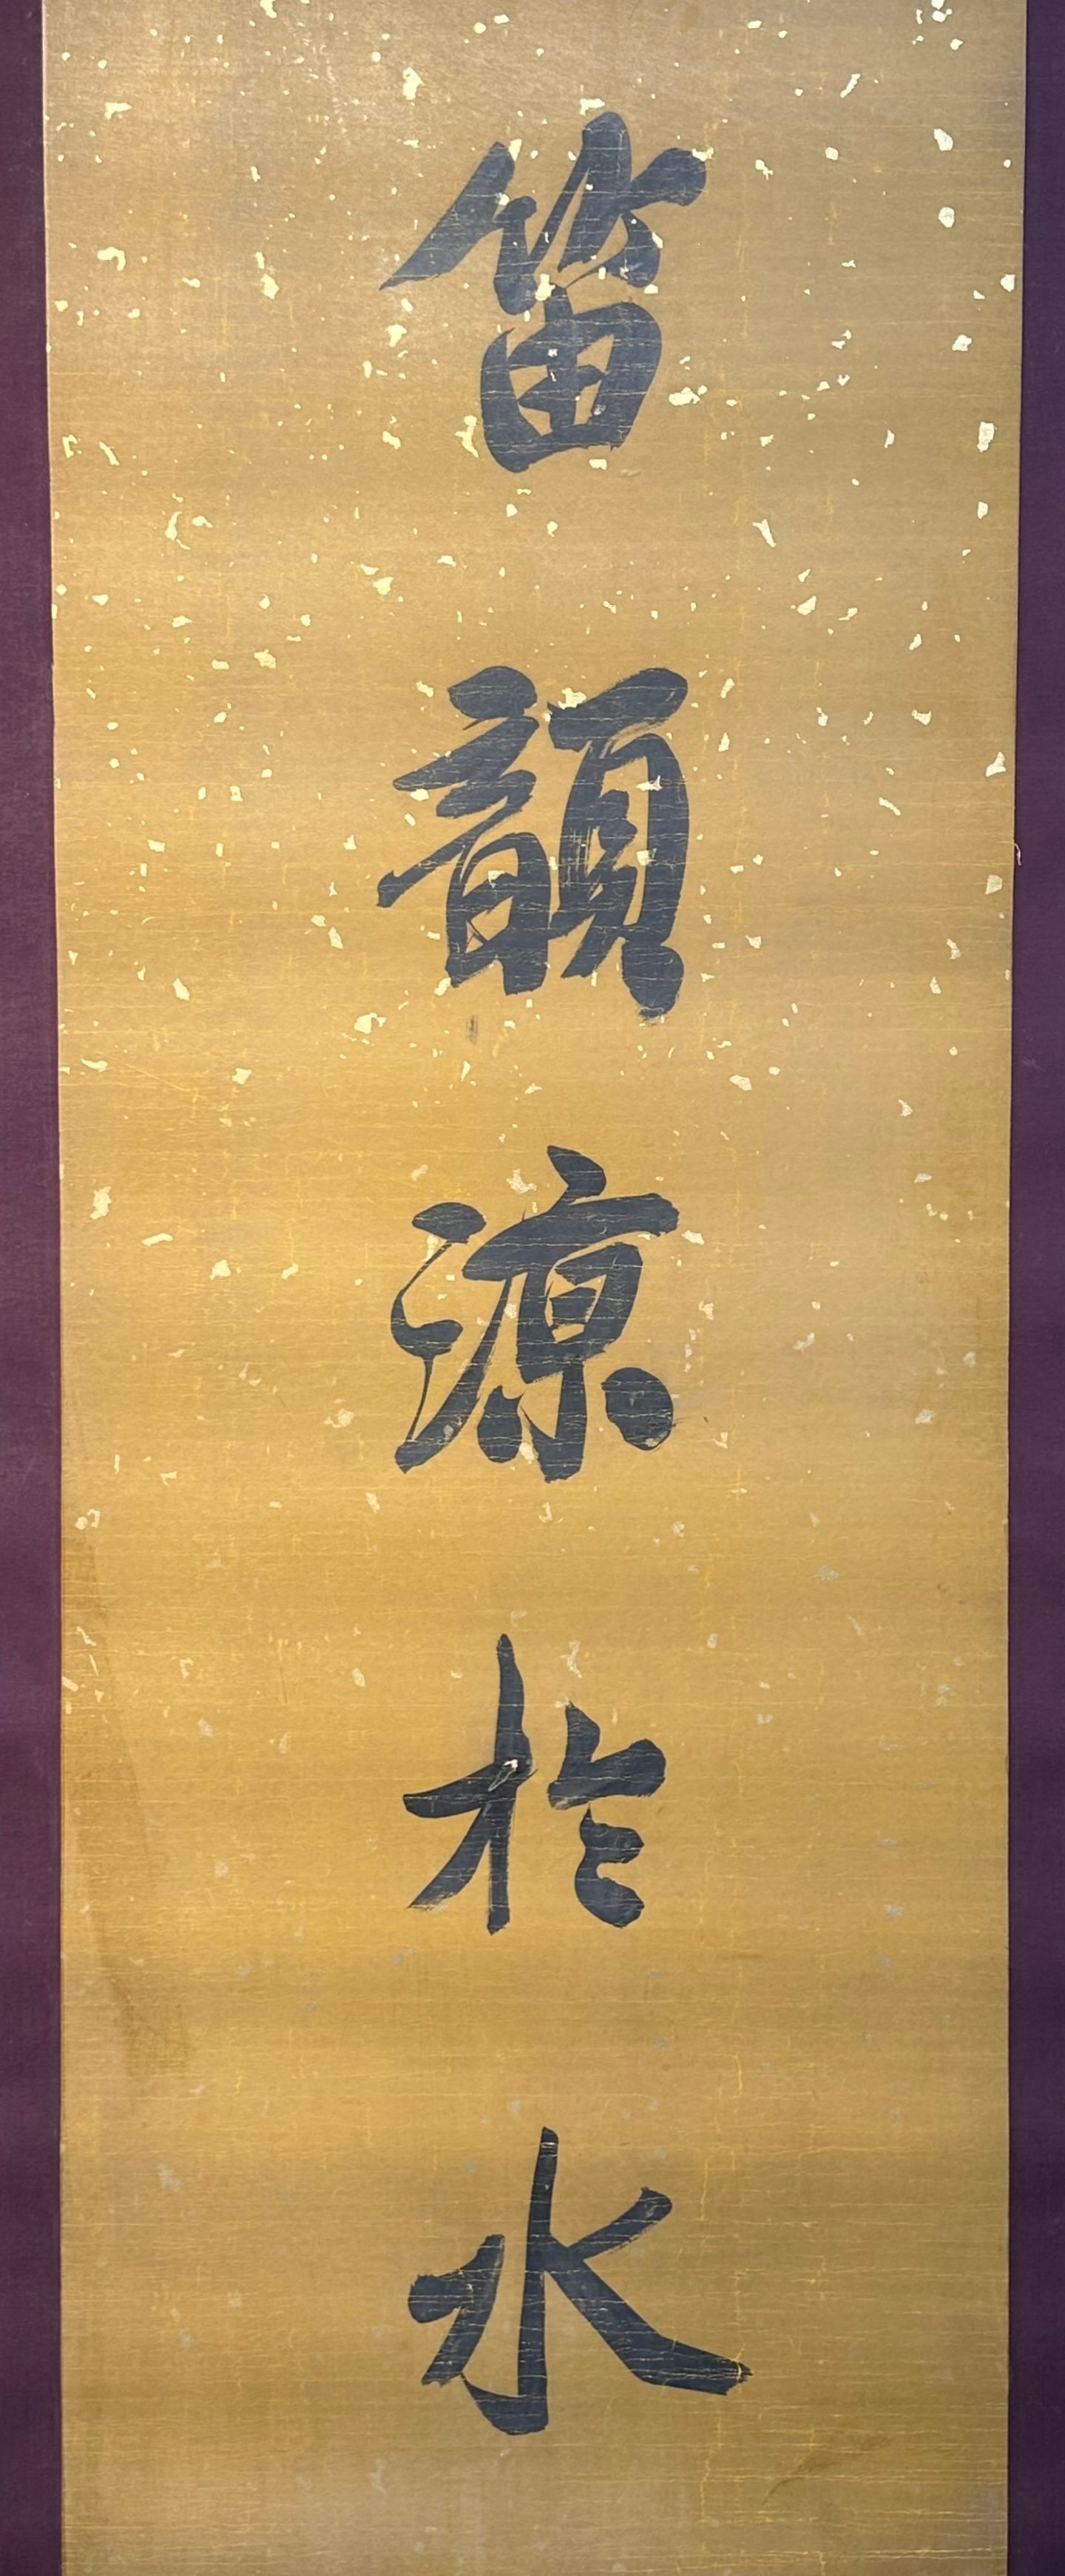 笛韻凉於水